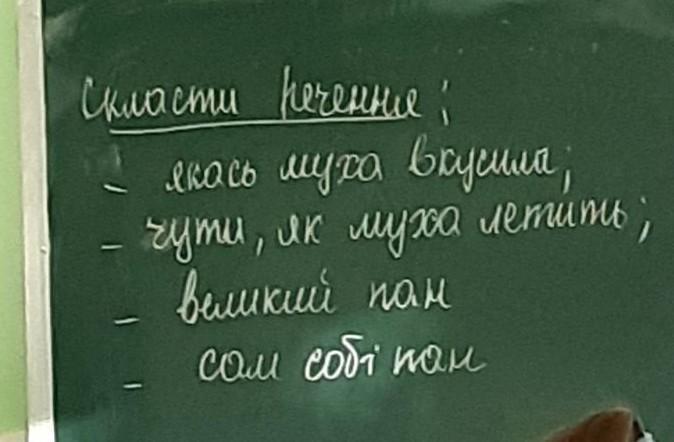 Скласти речення:
- якась муха вкусила;
- чути, як муха летить;
- великий пан
- сам собі пан